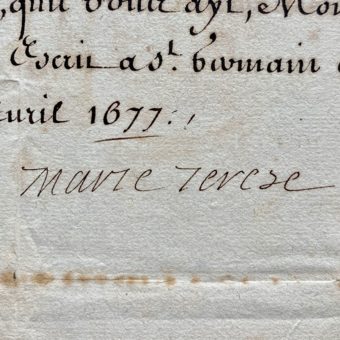 , qu'il vous ayt, Mon
Escrit a St. Germain
Avril 1677.
Marie Terese